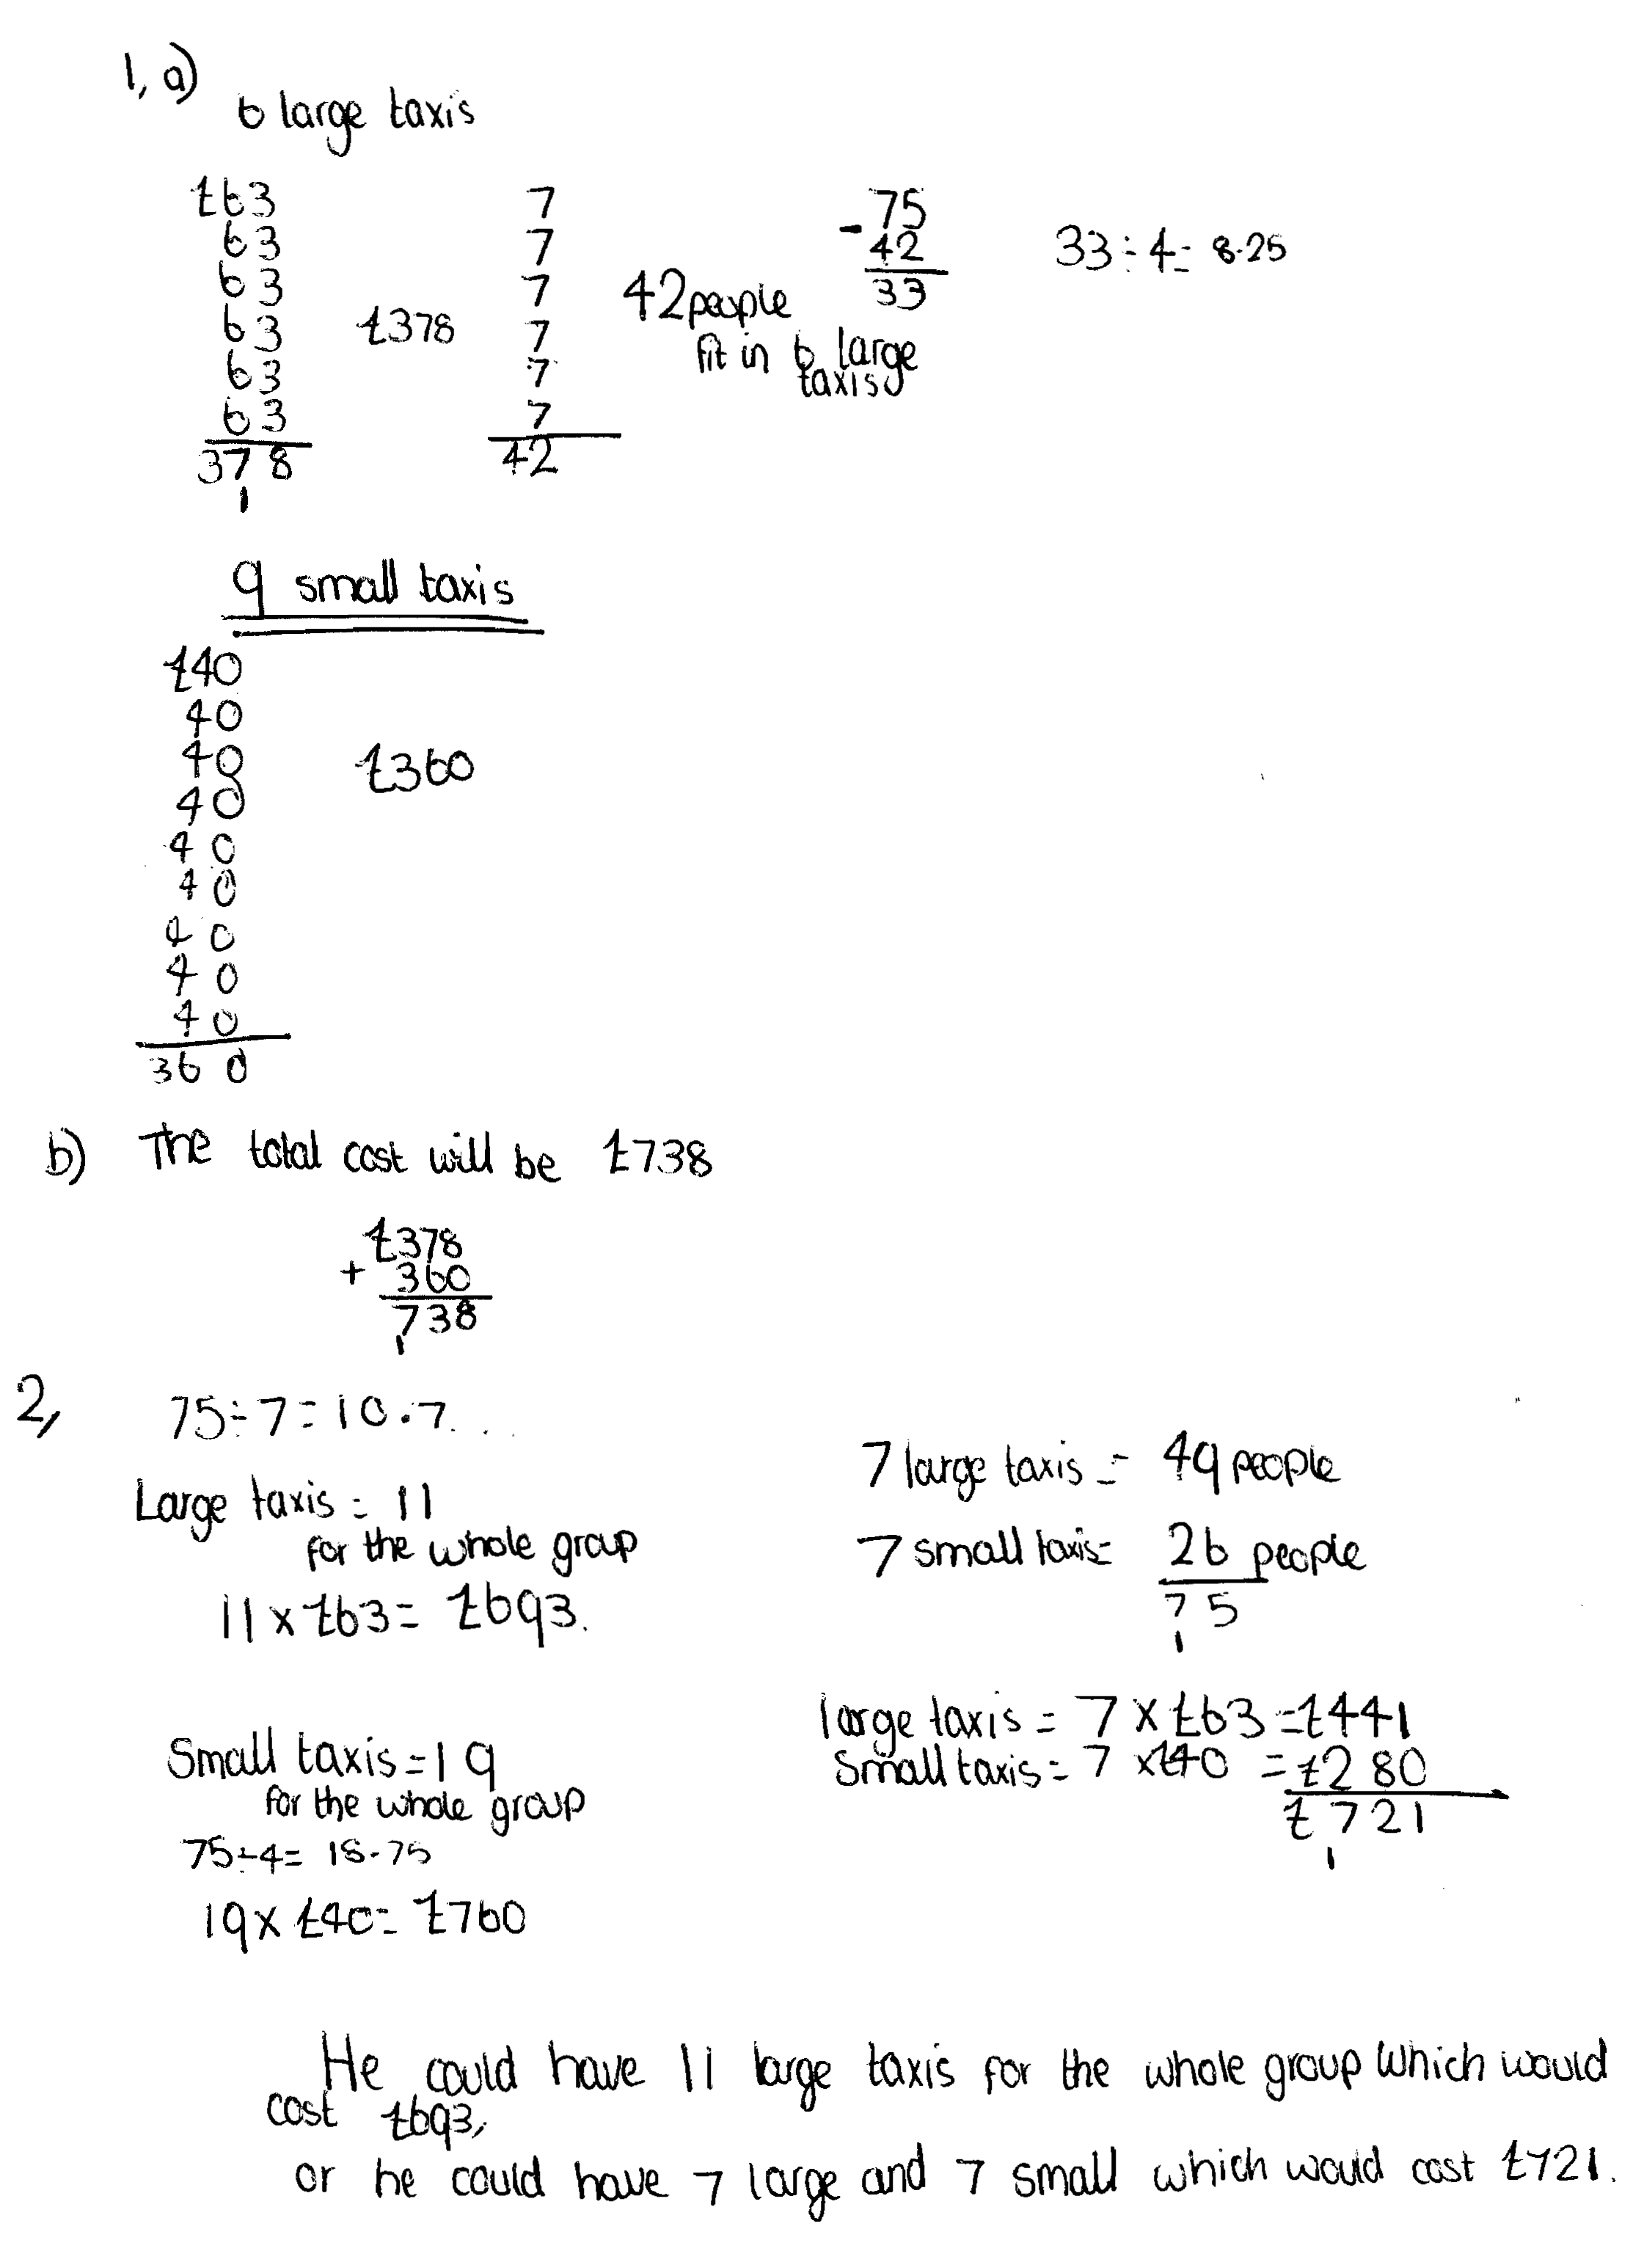 1, a)
6 large taxis
£63
63
63
63
63
63
378
1
£378
7
7
7
7
7
7
42
42 people
fit in 6 large
taxis
- 75
42
33
33 ÷ 4 = 8.25
9 small taxis
£40
40
40
40
40
40
40
40
40
360
£360
b) The total cost will be £738
£378
+ 360
738
1
2, 75 ÷ 7 = 10.7...
Large taxis = 11
for the whole group
11 x £63 = £693.
Small taxis = 19
for the whole group
75 ÷ 4 = 18.75
19 x £40 = £760
7 large taxis = 49 people
7 small taxis = 26 people
75
1
large taxis = 7 x £63 = £441
Small taxis = 7 x £40 = £280
£721
1
He could have 11 large taxis for the whole group which would
cost £693,
or he could have 7 large and 7 small which would cost £721.